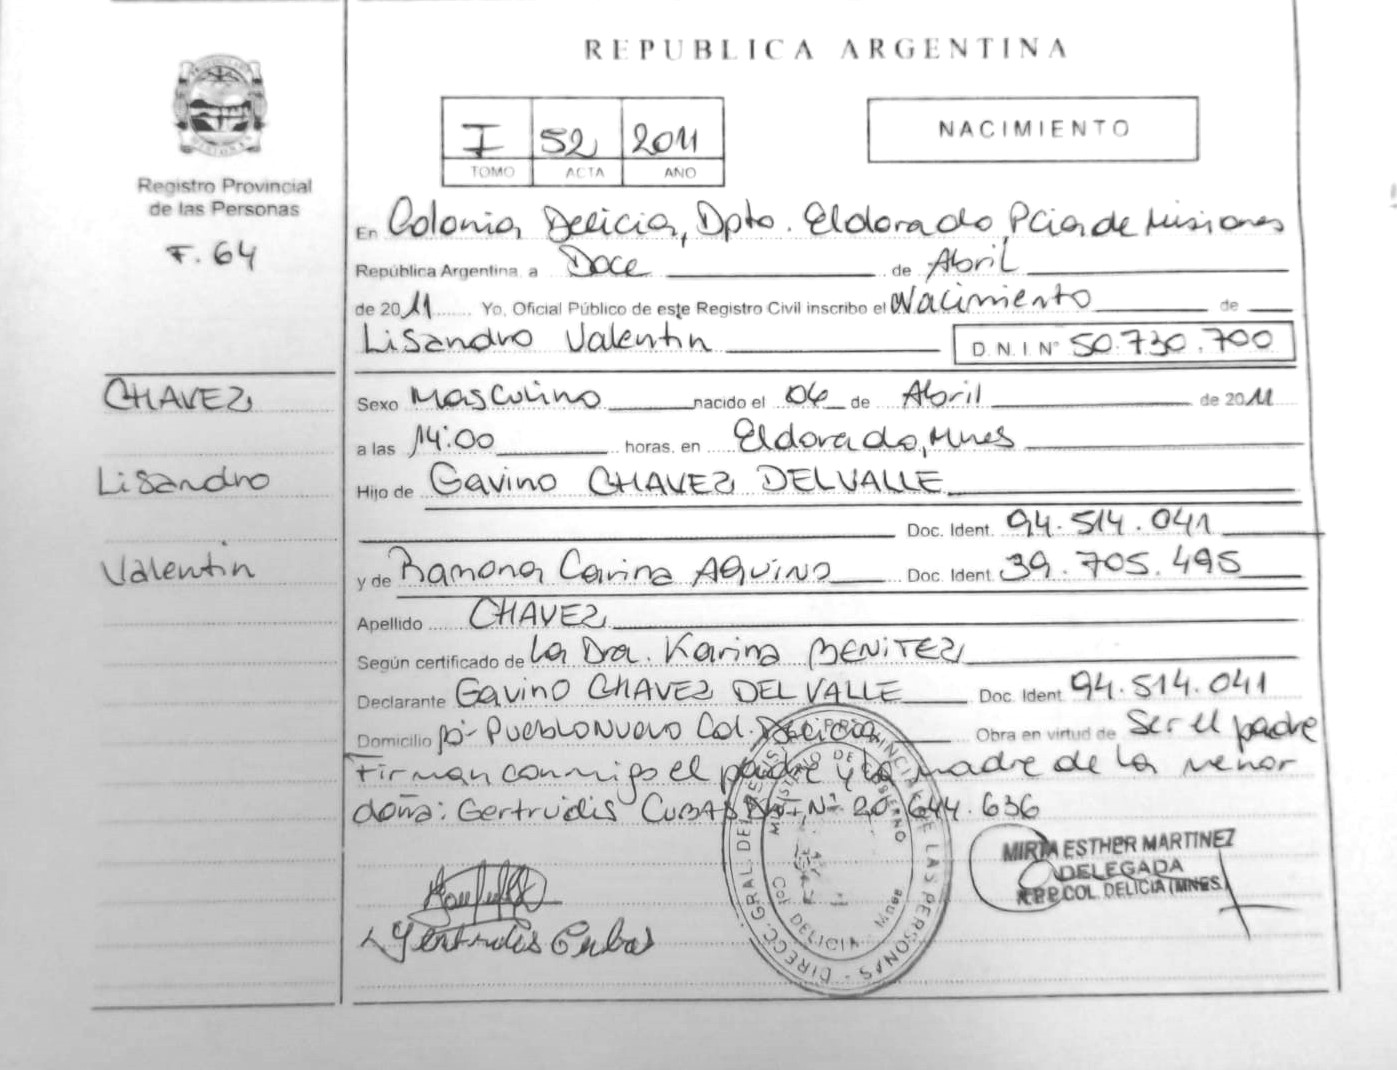 REPUBLICA ARGENTINA
I 52 2011
TOMO ACTA AÑO
NACIMIENTO
Registro Provincial
de las Personas
F. 64
CHAVEZ
Lisandro
Valentin
En Colonia Delicia, Dpto. Eldorado Pcia de Misiones
República Argentina, a Doce de Abril
de 2011 Yo, Oficial Público de este Registro Civil inscribo el Nacimiento de
Lisandro Valentin D.N.I. Nº 50.730.700
Sexo Masculino nacido el 06 de Abril de 2011
a las 14:00 horas, en Eldorado, Mnes
Hijo de Gavino CHAVEZ DELVALLE
Doc. Ident. 94.514.041
y de Ramona Carina AQUINO Doc. Ident. 39.705.495
Apellido CHAVEZ
Según certificado de la Dra. Karina BENITEZ
Declarante Gavino CHAVEZ DELVALLE Doc. Ident. 94.514.041
Domicilio Pueblo Nuevo Col. Delicia Obra en virtud de Ser el padre
Firman conmigo el padre y la madre de la menor
doña: Gertrudis CUBAS DNI Nº 20.644.636
Gertrudis Cubas
DIRECC. GRAL. DEL REGISTRO PROVINCIAL DE LAS PERSONAS
MINISTERIO DE GOBIERNO
COL. DELICIA - Mnes
MIRTA ESTHER MARTINEZ
DELEGADA
RPP COL DELICIA (MNES)